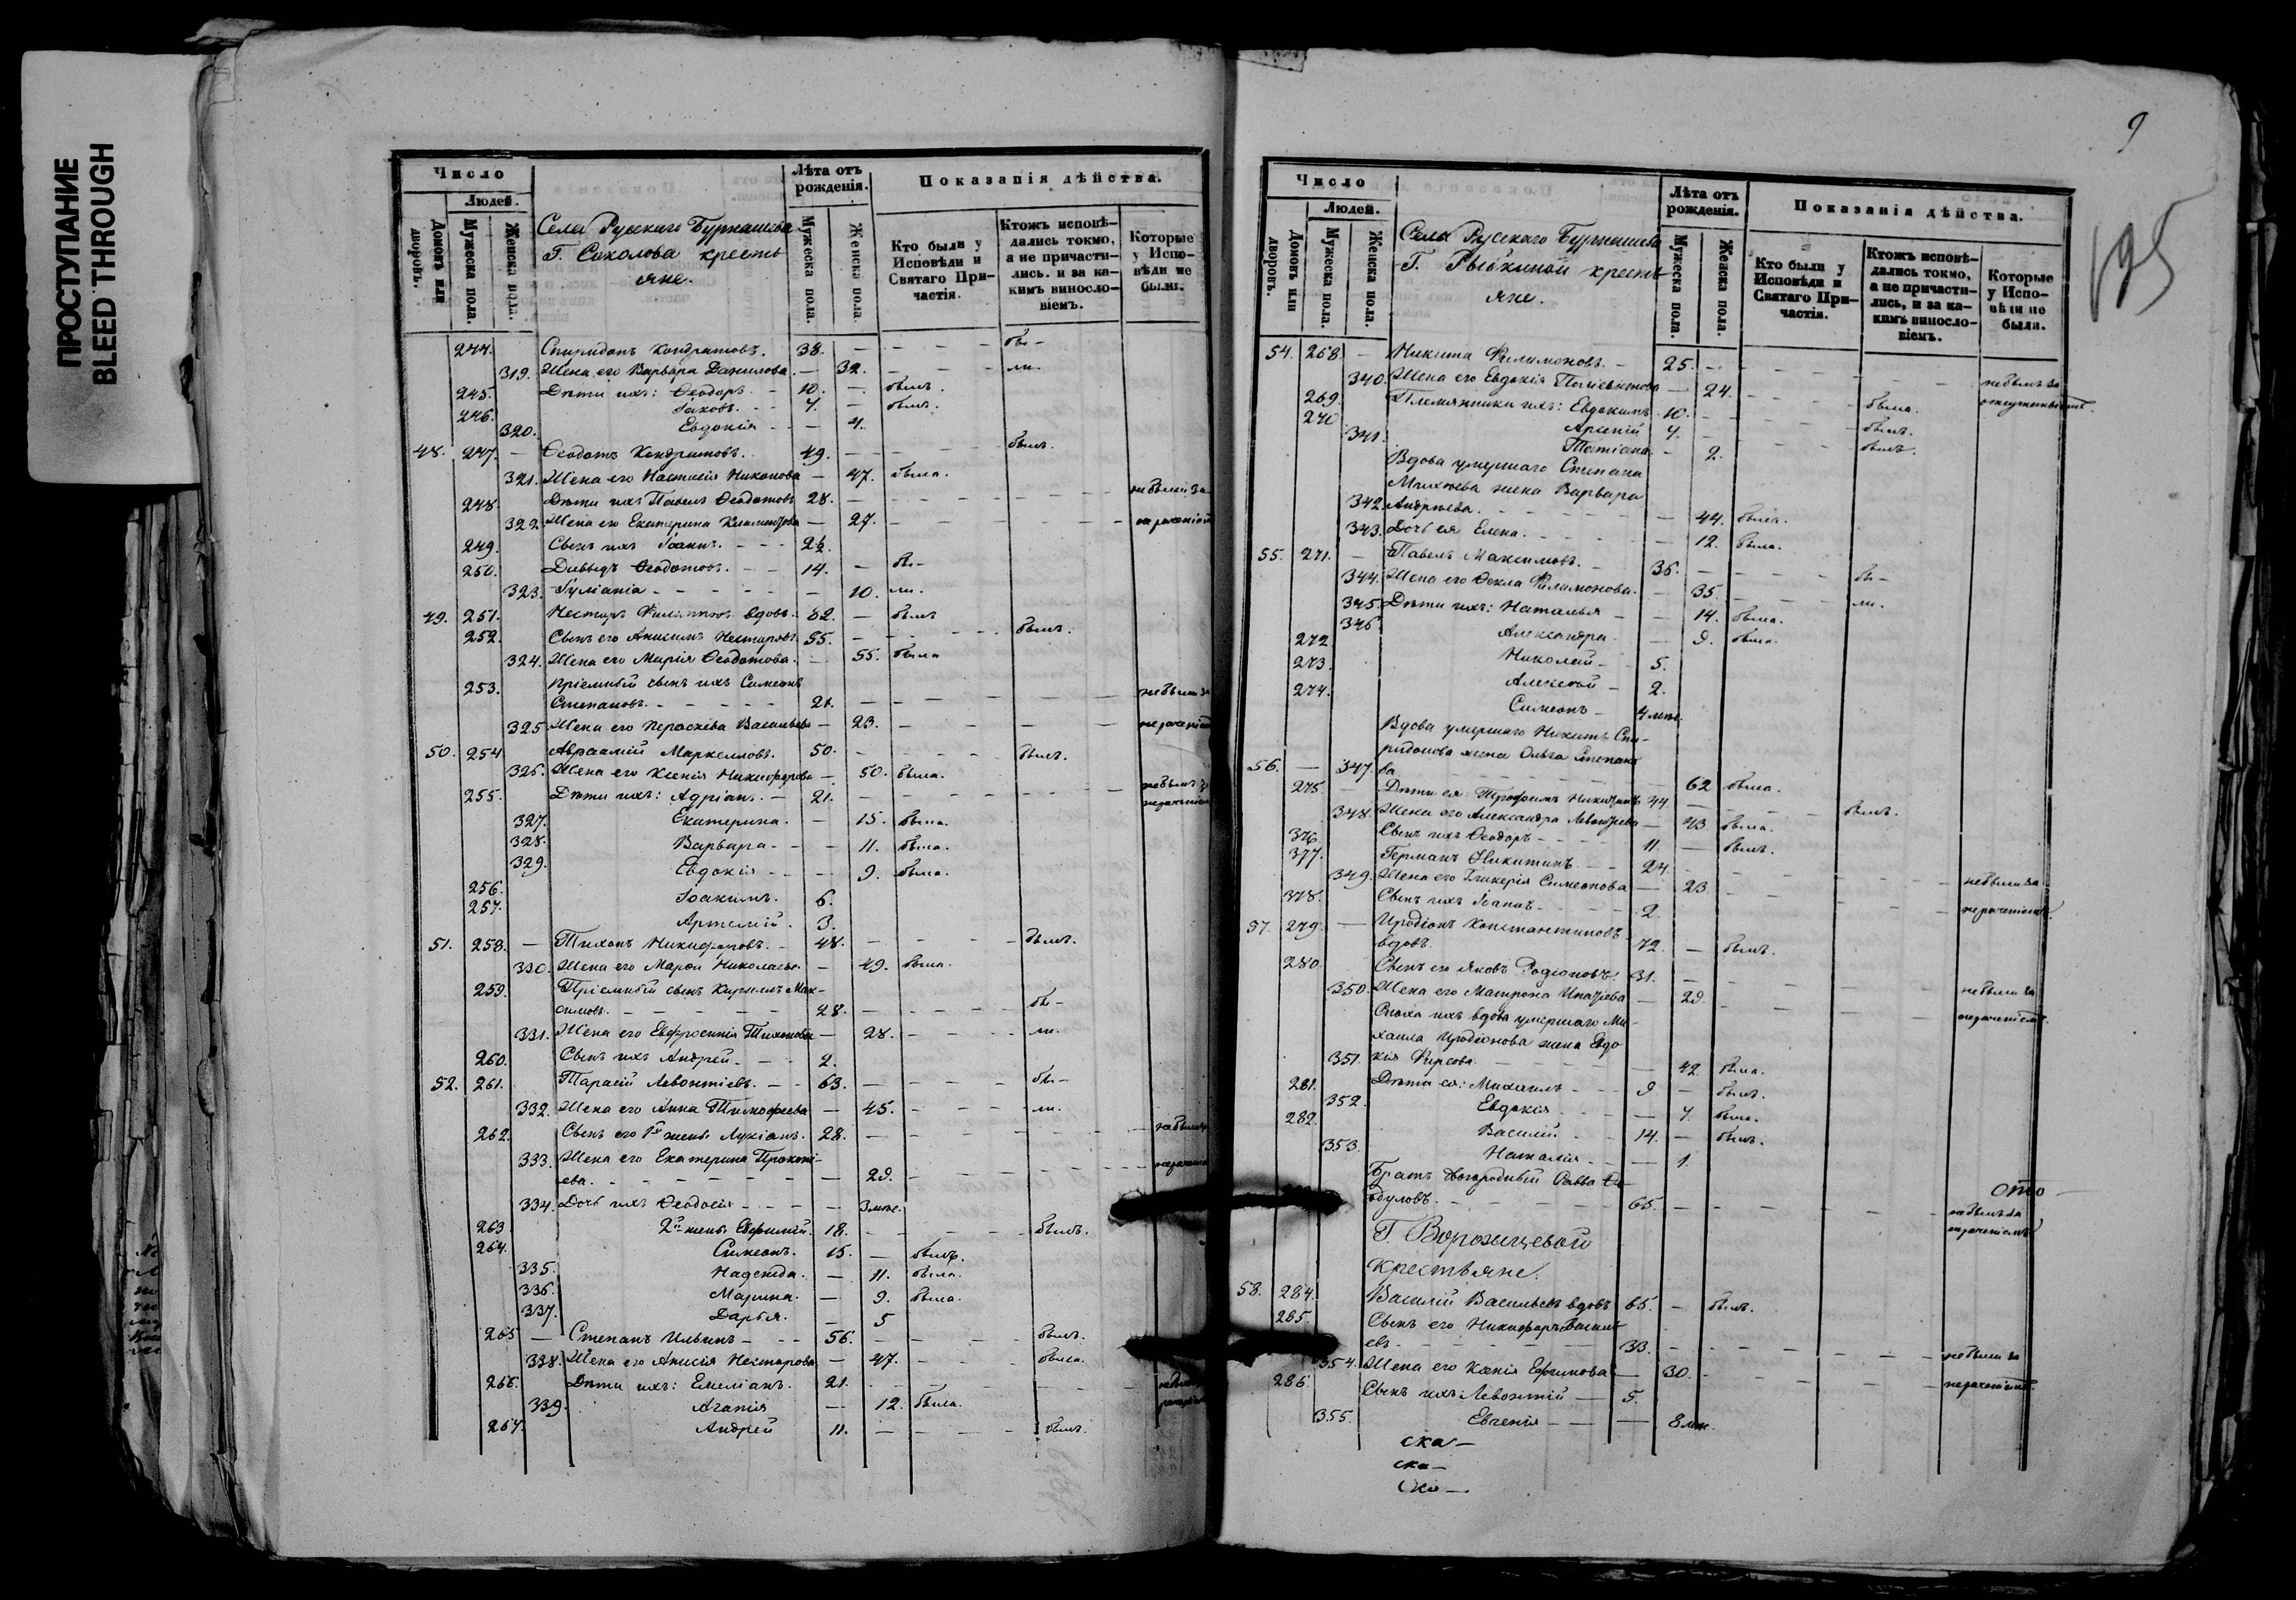 ПРОСТУПАНИЕ
BLEED THROUGH
Число
Людей.
Домовъ или дворовъ.
Мужеска пола.
Женска пола.
Села Русскаго Бурнашева
Г. Соколова кресть
яне.
Лѣта отъ рожденія.
Мужеска пола.
Женска пола.
Показанія дѣйства.
Кто были у Исповѣди и Святаго Причастія.
Ктожъ исповѣдались токмо, а не причастились. и за какимъ винословіемъ.
Которые у Исповѣди не были.
244. Спиридонъ Кондратовъ. 38. — бы-
319. Жена его Варвара Данилова — 32. ли.
245. Дѣти ихъ: Ѳеодоръ. 10. — былъ.
246. Іаковъ. 7. — былъ.
320. Евдокія — 4.
48. 247. — Ѳеодотъ Кондратовъ. 49. былъ.
321. Жена его Настасія Никонова — 47. была.
248. Дѣти ихъ Павелъ Ѳеодотовъ 28. — не были за
322. Жена его Екатерина — 27. — нераченіемъ
249. Сынъ ихъ Іоаннъ. 2½.
250. Давыдъ Ѳеодотовъ. 14. — бы-
323. Іуліанія — 10. ли.
49. 251. Несторъ Филипповъ вдовъ. 82. — былъ
252. Сынъ его Анисимъ Несторовъ. 55. — былъ.
324. Жена его Марія Ѳеодотова. — 55. была
253. Пріемный сынъ ихъ Симеонъ
Степановъ. 21. — не были за
325. Жена его Параскева Васильева — 23. — нераченіемъ
50. 254 Авраамій Маркелловъ. 50. — былъ.
326. Жена его Ксенія Никифорова — 50. была.
255. Дѣти ихъ: Адріанъ. — 21. — не былъ за нераченіем
327. Екатерина. — 15. была.
328. Варвара — 11. была.
329. Евдокія — 9. была.
256. Іоакимъ. 6.
257. Артемій. 3.
51. 258. — Тихонъ Никифоровъ. — 48. — былъ.
330. Жена его Марѳа Николаева — 49. была.
259. Пріемный сынъ Кирилъ Мак-
симовъ. 28. — бы-
331. Жена его Евфросинія Тихонова — 28. — ли.
260. Сынъ ихъ Андрей. 2.
52. 261. Тарасій Левонтіевъ. 63. — бы-
332. Жена его Анна Тимофеева — 45. — ли.
262. Сынъ его 1й жены Лукіанъ. 28. — не были за
333. Жена его Екатерина Прокопі-
ева. — 29. — нераченіе
334. Дочь ихъ Ѳеодосія — 3 мѣс.
263 2й жены Евфимій. 18. — былъ.
264. Симеонъ. 15. — былъ.
335. Надежда. — 11. была.
336. Марина. — 9. была.
337. Дарья. — 5
265 — Степанъ Ильинъ — 56. — былъ.
338. Жена его Анисія Несторова — 47. — была.
266. Дѣти ихъ: Емеліанъ. 21. —
339. Агапія — 12. была.
267. Андрей 11. — былъ.
9
195
Число
Людей.
Домовъ или дворовъ.
Мужеска пола.
Женска пола.
Села Русскаго Бурнашева
Г. Рыбкиной кресть
яне.
Лѣта отъ рожденія.
Мужеска пола.
Женска пола.
Показанія дѣйства.
Кто были у Исповѣди и Святаго Причастія.
Ктожъ исповѣдались токмо, а не причастились, и за какимъ винословіемъ.
Которые у Исповѣди не были.
54. 268. — Никита Филимоновъ. — 25. — не былъ за
340. Жена его Евдокія — 24. была. отлучкою
269. Племянники ихъ: Евдокимъ. 10. — былъ.
270 Арсеній 7. — былъ.
341. Татіана. — 2.
Вдова умершаго Степана
Михѣева жена Варвара
342. Андреева. — 44. была.
343. Дочь ея Елена. — 12. была.
55. 271. — Павелъ Максимовъ. — 36. — бы-
344. Жена его Ѳекла Филимонова. — 35. — ли.
345. Дѣти ихъ: Наталья — 14. была.
346. Александра. — 9. была.
272. Николай — 5.
273. Алексѣй — 2.
274. Симеонъ — 4 мѣс.
Вдова умершаго Никиты Спи-
ридонова жена Ольга Степано
56. — 347. ва — 62 была.
275 Дѣти ея: Трофимъ Никитинъ 44 — былъ.
348. Жена его Александра Левонтіева — 43 была.
376. Сынъ ихъ Ѳеодоръ — 11 — былъ.
377. Германъ Никитинъ. — 24.
349. Жена его Гликерія Симеонова — 23 — не были за
378. Сынъ ихъ Іоаннъ — 2 — нераченіемъ.
57. 279 — Иродіонъ Константиновъ
вдовъ. 72. — былъ.
280. Сынъ его Яковъ Родіоновъ 31. —
350. Жена его Матрона Игнатіева — 29. — не были за
Сноха ихъ вдова умершаго Ми- нераченіемъ.
хаила Иродіонова жена Евдо
351. кія Фирсова — 42. была.
281. Дѣти ея: Михаилъ — 9 — былъ.
352. Евдокія — 7. была.
282. Василій — 14. — былъ.
353. Наталія — 1.
Братъ двоюродный Савва Ѳе
одуловъ. — 65. — не былъ за нераченіемъ
Г. Ворожцевой
крестьяне.
58. 284. Василій Васильевъ вдовъ 65. — былъ.
285. Сынъ его Никифоръ Василь
евъ — 33. — не были за
354. Жена его Ксенія Ефимова — 30. — нераченіемъ
286. Сынъ ихъ Левонтій — 5.
355. Евгенія — 8 мѣс.
ска —
ска —
ско —